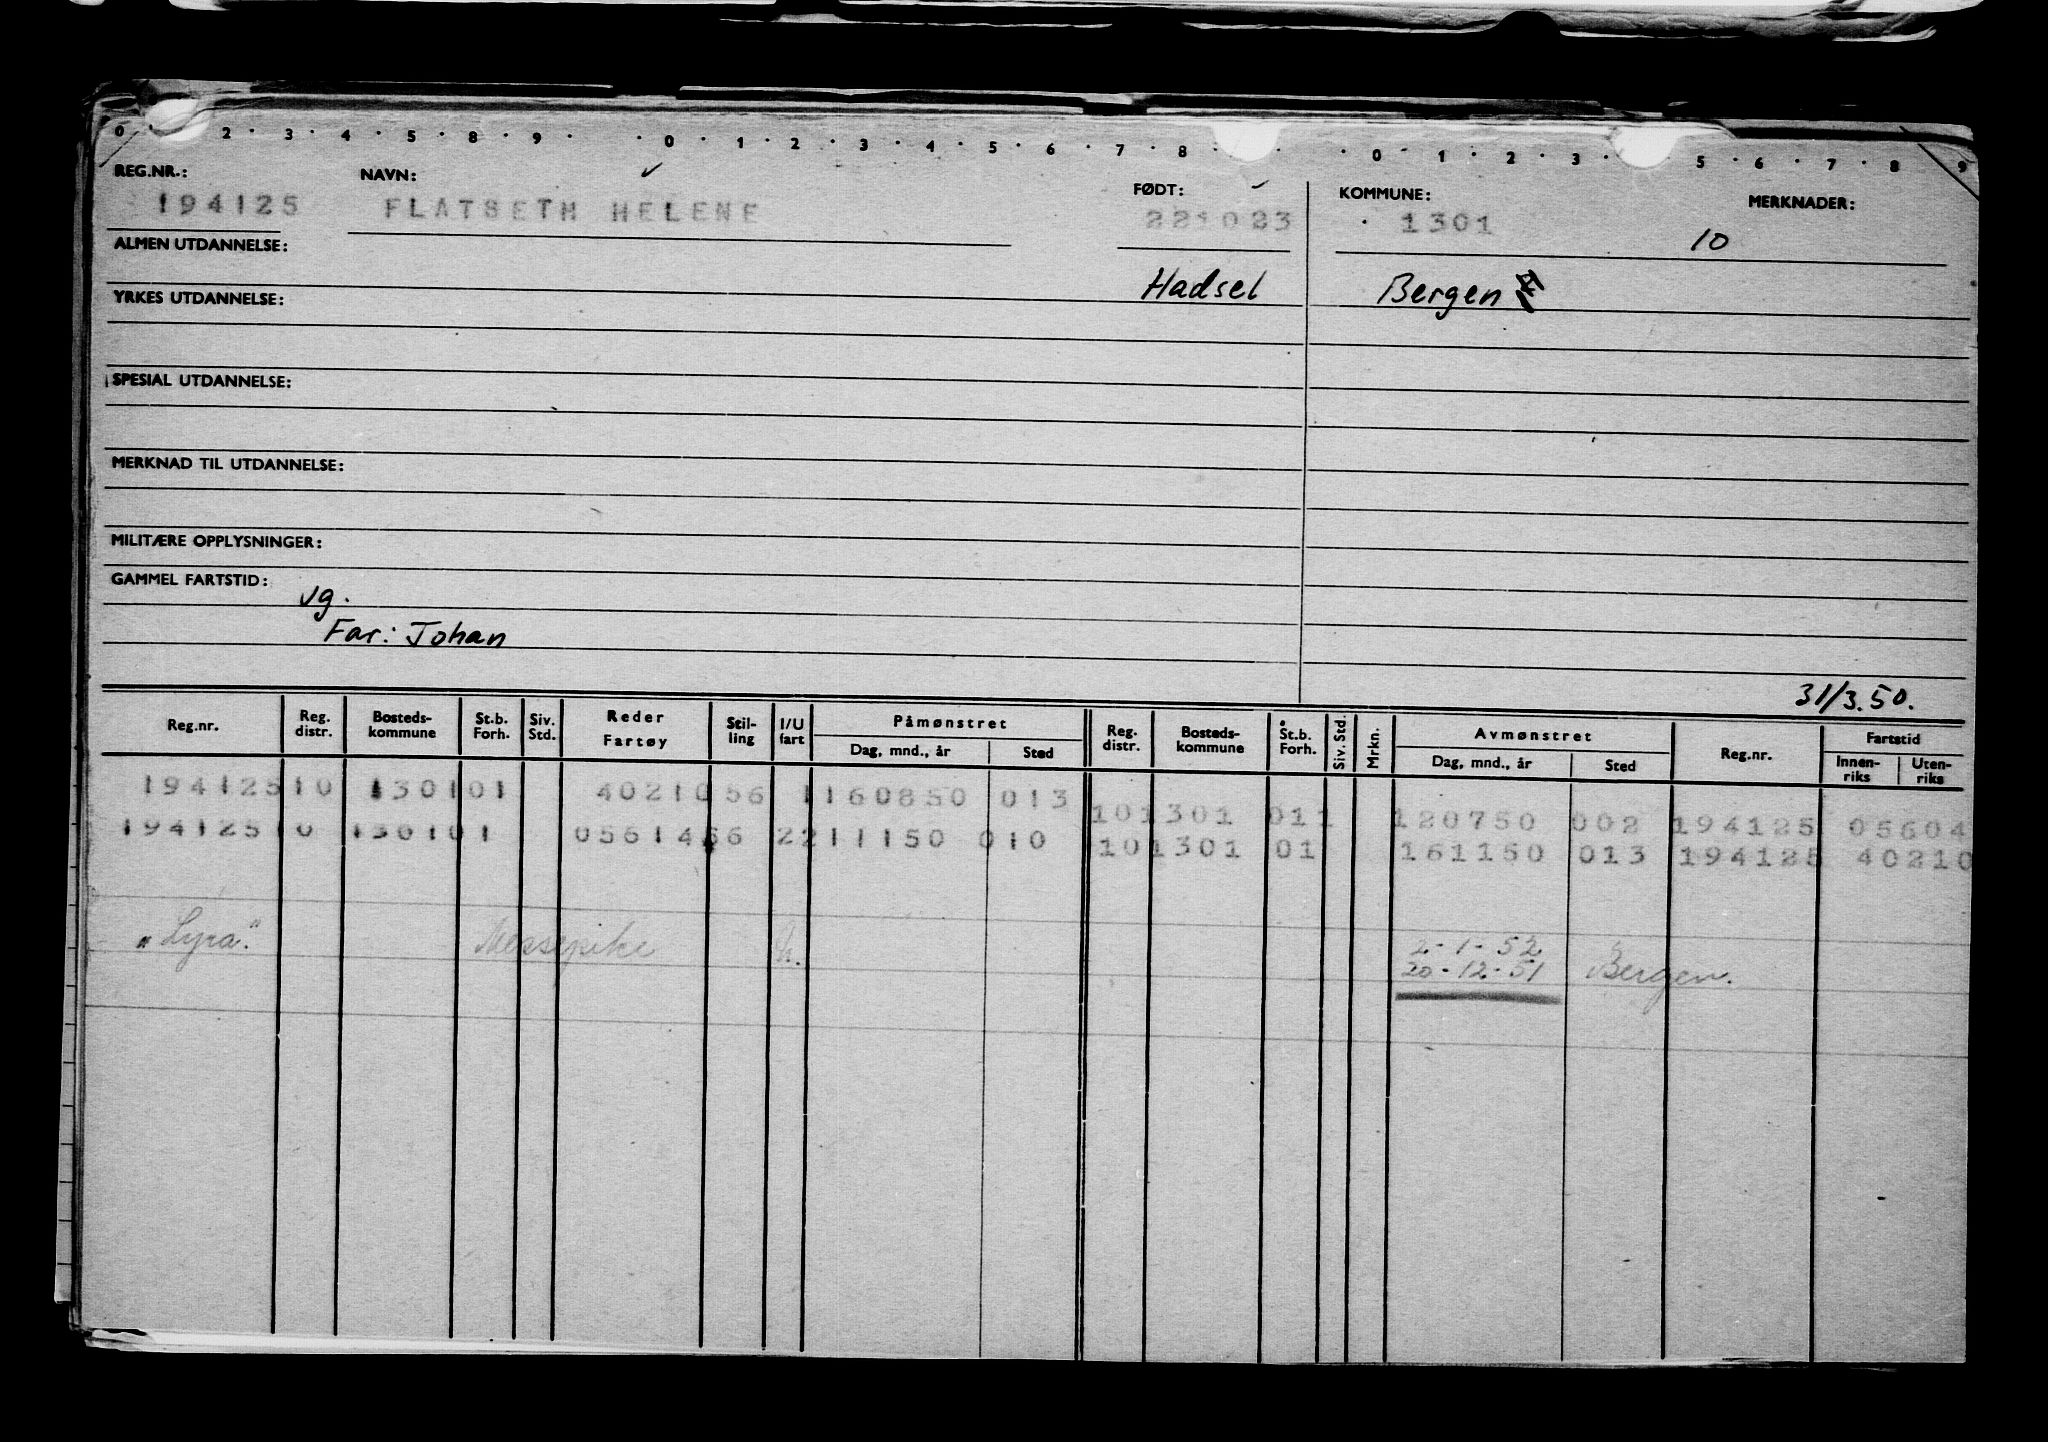 0 · 2 · 3 · 4 · 5 · 8 · 9 · · 0 · 1 · 2 · 3 · 4 · 5 · 6 · 7 · 8 · · 3 · · 0 · 1 · 2 · 3 · 5 · 6 · 7 · 8 · 9
REG.NR.: NAVN: FØDT: KOMMUNE: MERKNADER:
194125 FLATSETH HELENE 221023 1301 10
ALMEN UTDANNELSE:
Hadsel Bergen
YRKES UTDANNELSE:
SPESIAL UTDANNELSE:
MERKNAD TIL UTDANNELSE:
MILITÆRE OPPLYSNINGER:
GAMMEL FARTSTID:
vg.
Far: Johan
31/3.50.
Reg.nr. Reg. distr. Bosteds-kommune St.b. Forh. Siv. Std. Reder Fartøy Stil-ling I/U fart Påmønstret Dag, mnd., år Sted Reg. distr. Bosteds-kommune St.b. Forh. Siv. Std. Mrkn. Avmønstret Dag, mnd., år Sted Reg.nr. Fartstid Innen-riks Uten-riks
194125 10 1301 01 40210 56 1 160850 013
10 1301 01 1 120750 002 194125 05604
194125 10 1301 01 05614 56 2 211150 010
10 1301 01 161150 013 194125 40210
"Lyra." Messepike U. 2-1-52
20-12-51 Bergen.